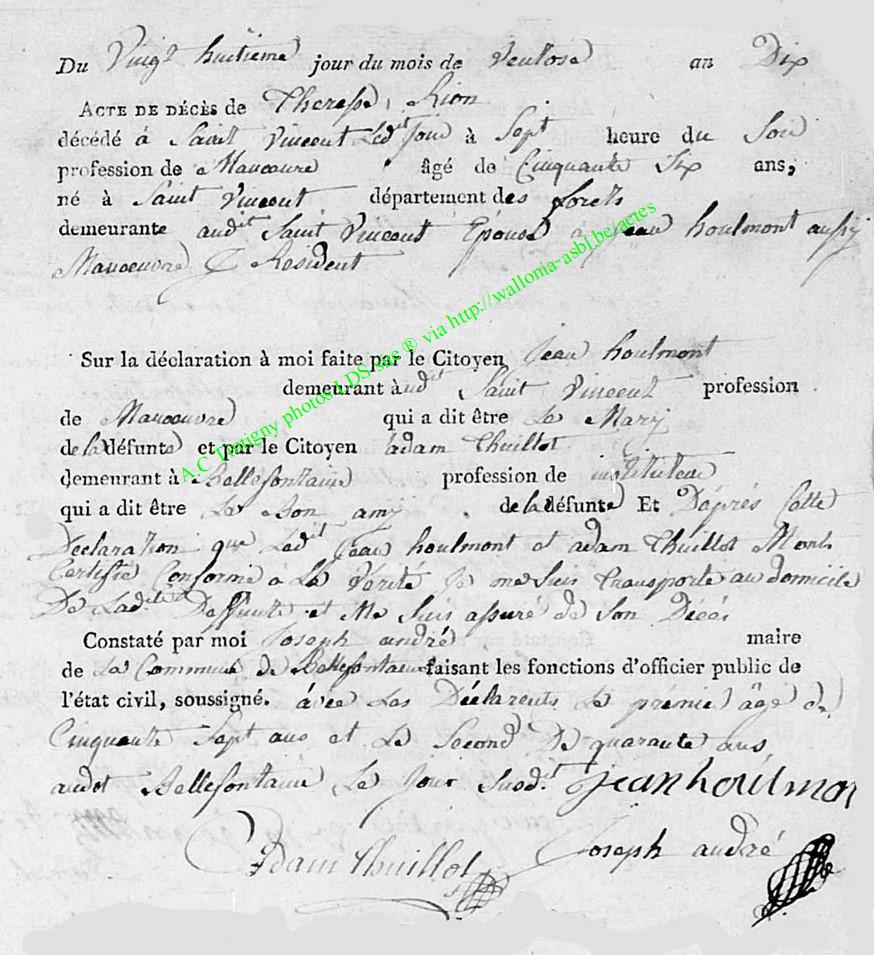 Du Vingt huitieme jour du mois de Ventose an Dix
ACTE DE DÉCÈS de Therese Rion
décédé à Saint Vincent Ledit jour à Sept heure du Soir
profession de Manoeuvre âgé de Cinquante Six ans,
né à Saint Vincent département des forets
demeurante audit Saint Vincent Epouse à jean houlmont aussy
Manoeuvre Resident
Sur la déclaration à moi faite par le Citoyen jean houlmont
demeurant audit Saint Vincent profession
de Manoeuvre qui a dit être Le Mary
de la défunte et par le Citoyen adam Thuillot
demeurant à Bellefontaine profession de instituteur
qui a dit être Le Bon amy de la défunte Et Daprés Cette
Declaration que Ledit jean houlmont et adam Thuillot Mont
Certifié Conforme a La Vérité Je me Suis transporte au domicile
De Ladite Deffunte et Me Suis assuré de Son Décés
Constaté par moi Joseph andré maire
de La Commune de Bellefontaine faisant les fonctions d'officier public de
l'état civil, soussigné. avec Les Déclarents Le premier âgé de
Cinquante Sept ans et Le Second De quarante ans
audit Bellefontaine Le Jour Susdit jean houlmon
Adam Thuillot Joseph andré
A.C Tintigny photos LDS-sae ® via http://wallonia-asbl.be/actes